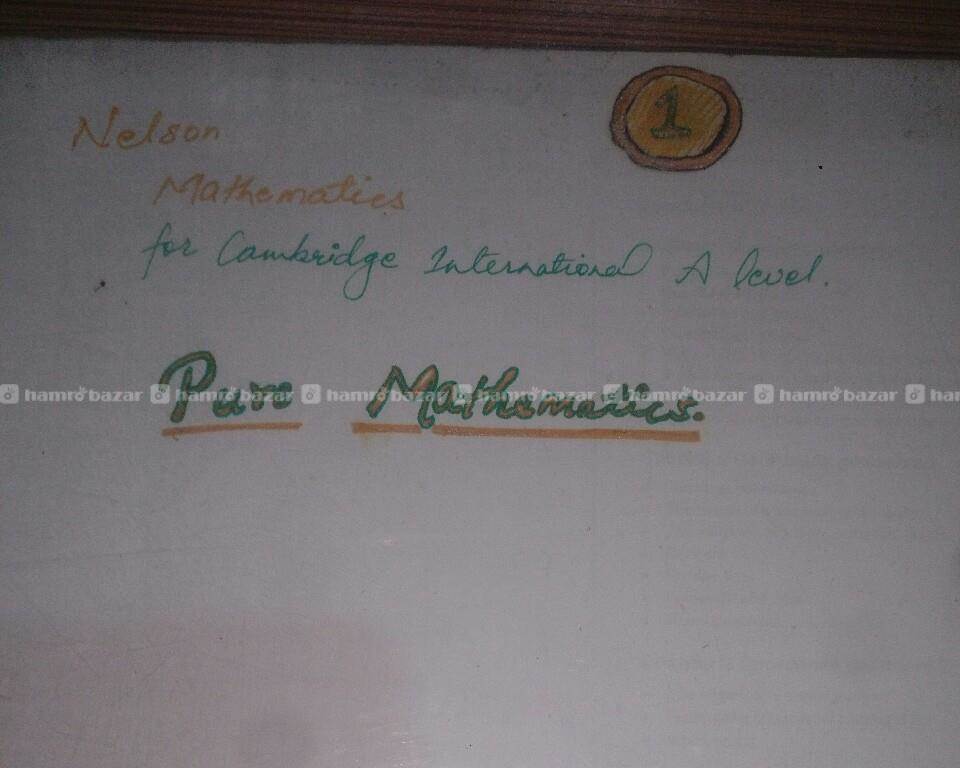 1
Nelson
Mathematics
for Cambridge International A level.
Pure Mathematics.
hamro bazar hamro bazar hamro bazar hamro bazar hamro bazar hamro bazar ham